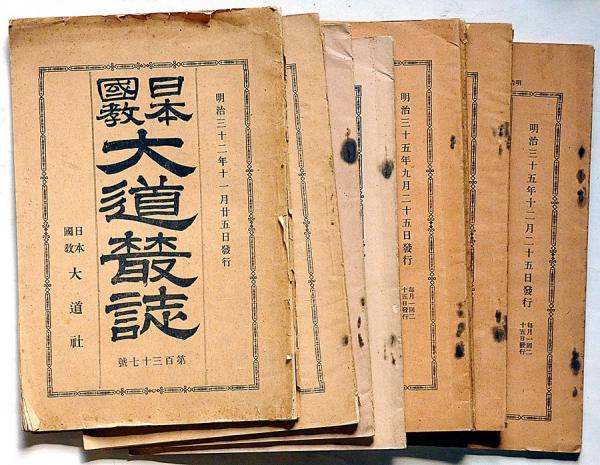 明治三十二年十一月廿五日發行
日本
國教
大道叢誌
日本
國教
大道社
第百三十七號
明治三十五年九月二十五日發行
每月一回二
十五日發行
明治三十五年十二月二十五日發行
每月一回二
十五日發行
明治